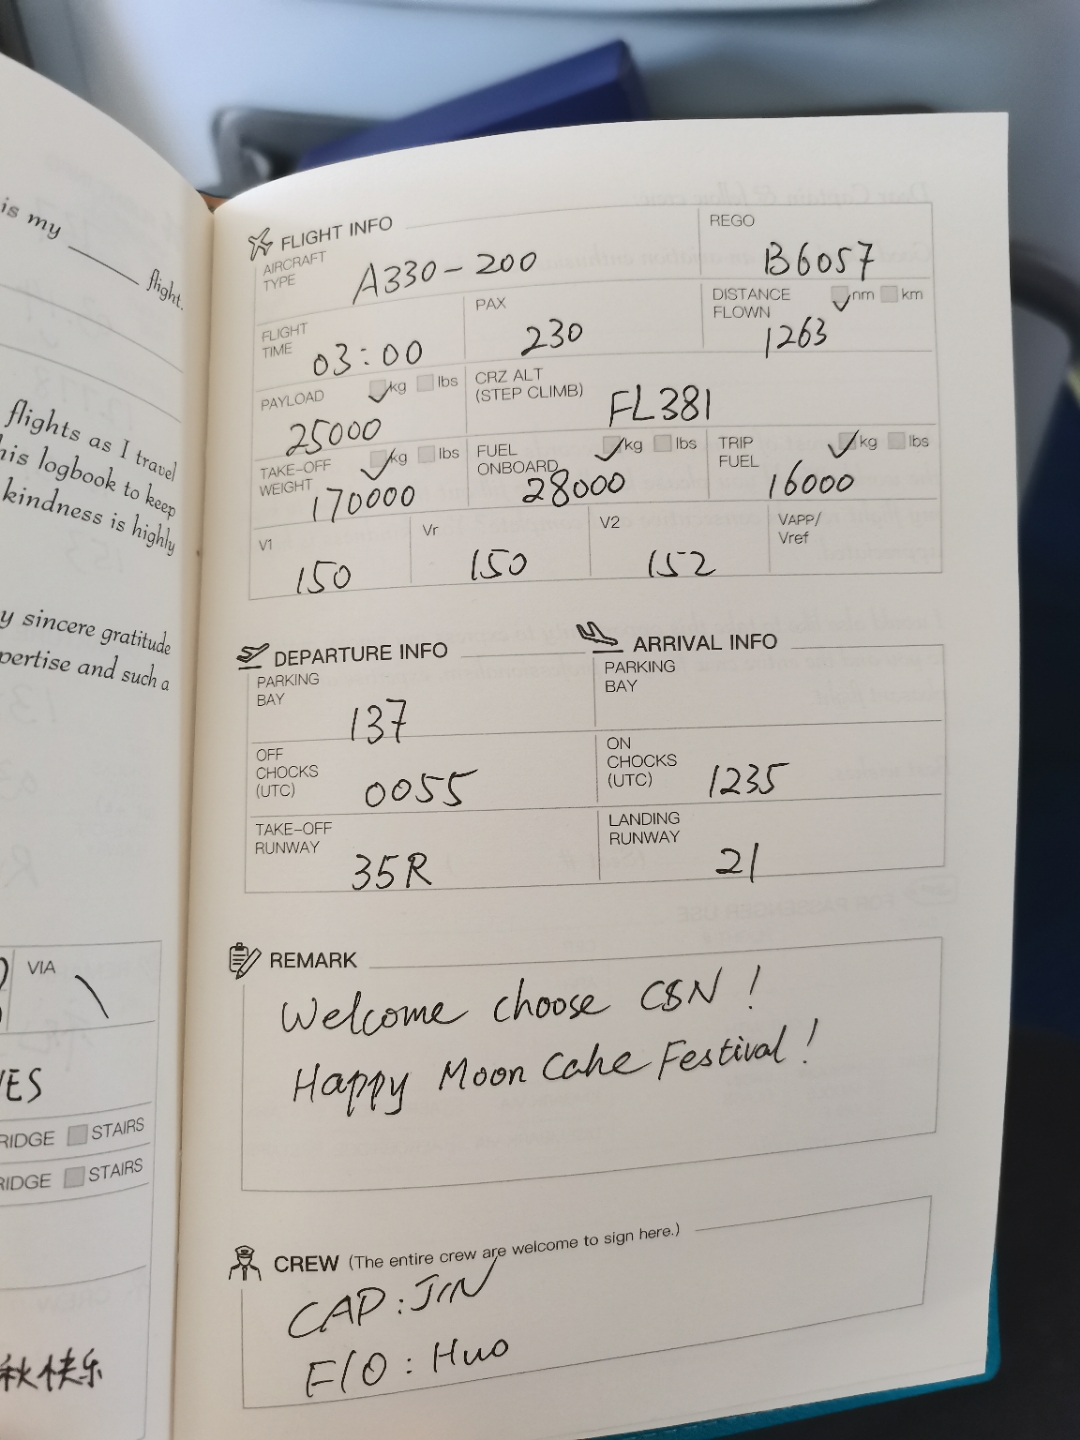 is my ______ flight.
flights as I travel
his logbook to keep
kindness is highly
y sincere gratitude
pertise and such a
VIA \
YES
RIDGE STAIRS
RIDGE STAIRS
秋快乐
FLIGHT INFO
AIRCRAFT TYPE A330-200
REGO B6057
FLIGHT TIME 03:00
PAX 230
DISTANCE FLOWN nm km 1263
PAYLOAD kg lbs 25000
CRZ ALT (STEP CLIMB) FL381
TAKE-OFF WEIGHT kg lbs 170000
FUEL ONBOARD kg lbs 28000
TRIP FUEL kg lbs 16000
V1 150
Vr 150
V2 152
VAPP/ Vref
DEPARTURE INFO
PARKING BAY 137
OFF CHOCKS (UTC) 0055
TAKE-OFF RUNWAY 35R
ARRIVAL INFO
PARKING BAY
ON CHOCKS (UTC) 1235
LANDING RUNWAY 21
REMARK
Welcome choose CSN!
Happy Moon Cake Festival!
CREW (The entire crew are welcome to sign here.)
CAP: JIN
F/O: Huo